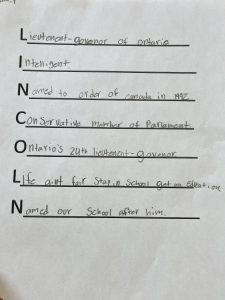 Lieutenent-govenor of ontario
Intelligent.
Named to order of canada in 1992.
Conservative member of Parlament.
Ontario's 24th lieutenent-govenor
Life aint fair Stay in School get an Education.
Named our School after him.